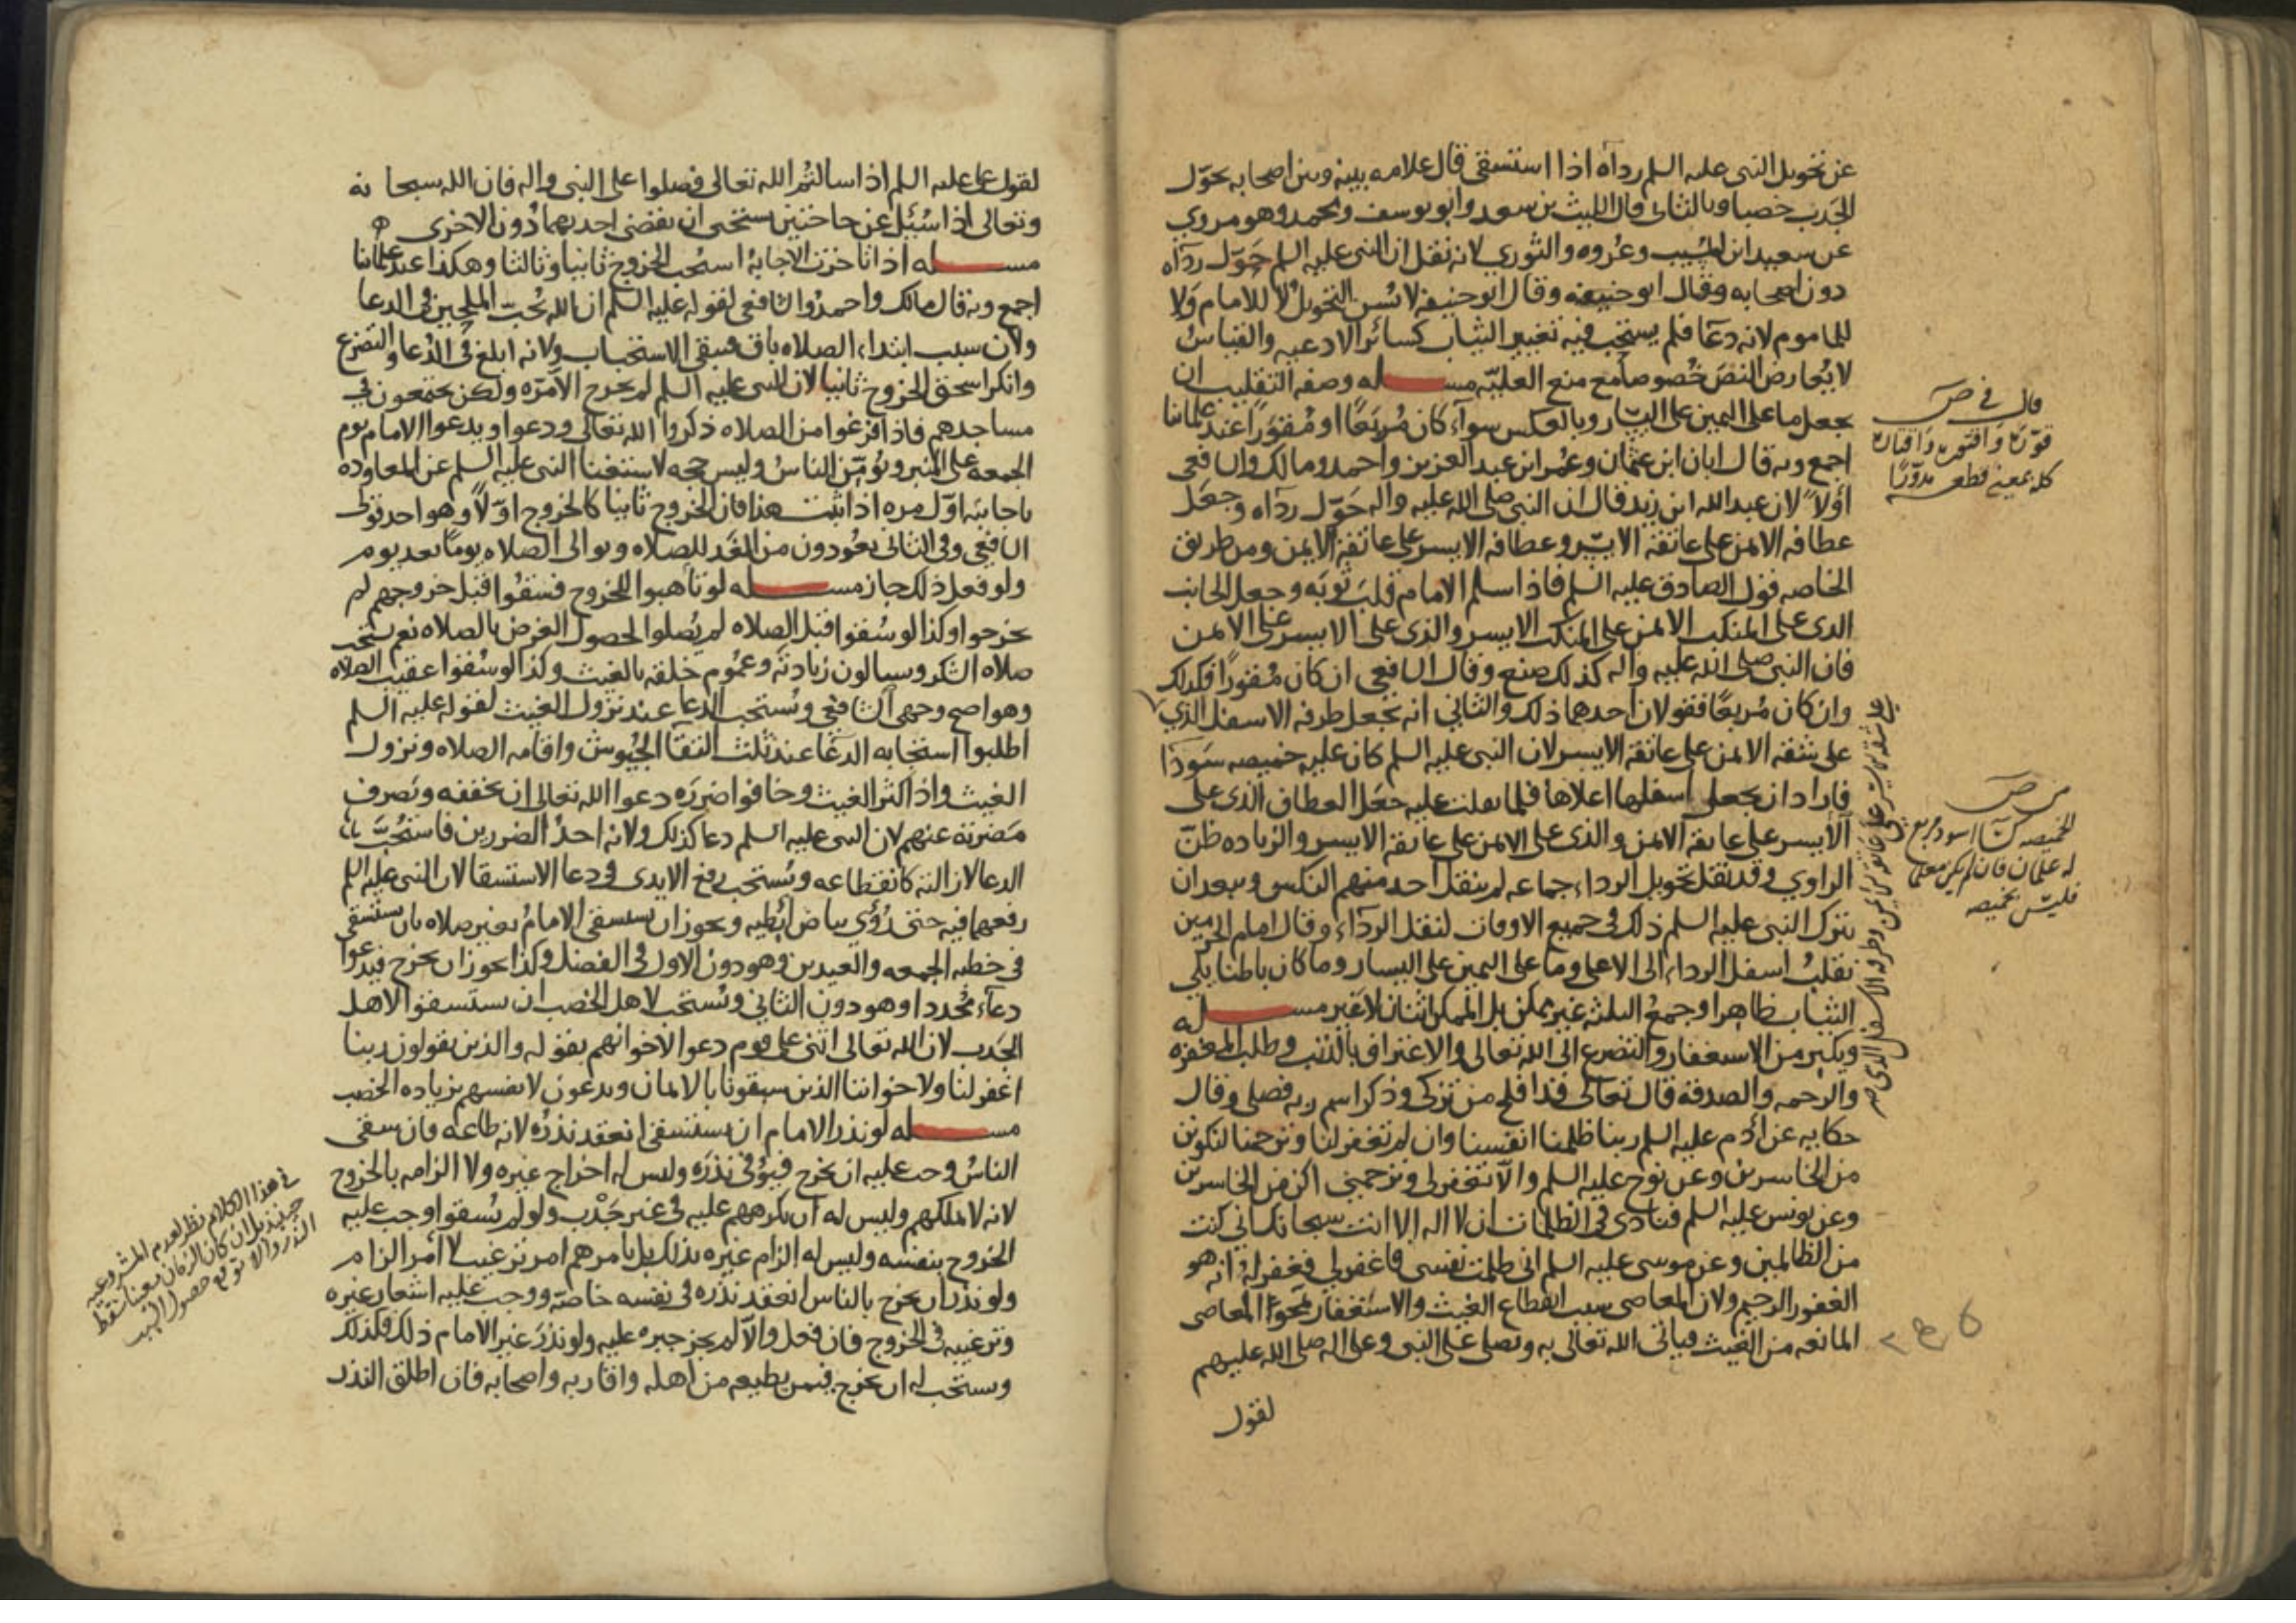 عن تحويل النبي عليه السلم رداه اذا استسقى قال علامه بينه وبين اصحابه بحوّل
الجدب خصبا وبالثاني قال الليث بن سعد وابو يوسف ومحمد وهو مروي
عن سعيد ابن المسيب وعُروه والثوري لانه نقل ان النبي عليه السلم حوّل رداه
دون اصحابه وقال ابو حنيفه لا يسن التحويل لا للامام ولا
للماموم لانه دعآ فلم يستحب فيه تغيير الثياب كسائر الادعيه والقياس
لا يُعارض النصّ خُصوصاً مع منع العليّه مسـله وصفه التقليب ان
يجعل ما على اليمين على اليسار وبالعكس سوآء كان مُربّعًا او مُقوّرًا عند علمائنا
اجمع وبه قال ابان ابن عثمان وعُمر ابن عبد العزيز واحمد ومالك والشافعي
اولاً لان عبد الله ابن زيد قال ان النبي صلى الله عليه واله حوّل رداه وجعل
عطافه الايمن على عاتقه الايسر وعطافه الايسر على عاتقه الايمن ومن طريق
الخاصه قول الصادق عليه السلم فاذا سلم الامام قلب ثوبه وجعل الجانب
الذي على المنكب الايمن على المنكب الايسر والذي على الايسر على الايمن
فان النبي صلى الله عليه واله كذلك صنع وقال الشافعي ان كان مُقورًا فكذلك
وان كان مُربعًا فقولان احدهما ذلك والثاني انه يجعل طرفه الاسفل الذي
على شقه الايمن على عاتقه الايسر لان النبي عليه السلم كان عليه خميصه سودآ
فاراد ان يجعل اسفلها اعلاها فلما ثقلت عليه جعل العطاف الذي على
الايسر على عاتقه الايمن والذي على الايمن على عاتقه الايسر والزياده ظنّ
الراوي وقد نقل تحويل الرداء جماعه لم ينقل احد منهم النكس ويبعد ان
يترك النبي عليه السلم ذلك في جميع الاوقات لثقل الرداء وقال امام الحرمين
يقلب اسفل الرداء الى الاعلى وما على اليمين على اليسار وما كان باطنا يلي
الثياب ظاهرا وجمع الثلثه غير ممكن بل الممكن اثنان لا غير مسـله
ويكثر من الاستغفار والتضرع الى الله تعالى والاعتراف بالذنب وطلب المغفره
والرحمه والصدقه قال تعالى قد افلح من تزكى وذكر اسم ربه فصلى وقال
حكايه عن ادم عليه السلم ربنا ظلمنا انفسنا وان لم تغفر لنا وترحمنا لنكونن
من الخاسرين وعن نوح عليه السلم والا تغفر لي وترحمني اكن من الخاسرين
وعن يونس عليه السلم فنادى في الظلمات ان لا اله الا انت سبحانك اني كنت
من الظالمين وعن موسى عليه السلم اني ظلمت نفسي فاغفر لي فغفر له انه هو
الغفور الرحيم ولان المعاصي سبب انقطاع الغيث والاستغفار يمحو المعاصي
المانعه من الغيث فياتي الله تعالى به ويصلي على النبي وعلى اله صلى الله عليهم
لقول
قال في ص
قوّره واقتوره واقتاره
كله بمعنى قطعه مدوّرًا
على شقه الايسر على عاتقه الايمن وطرفه الاسفل الذي
من ص
الخميصه كساء اسود مربع
له علمان فان لم يكن معلما
فليس بخميصه
لقول علي عليه السلم اذا سالتم الله تعالى فصلوا على النبي واله فان الله سبحانه
وتعالى اذا سُئل عن حاجتين يستحيي ان يقضي احديهما دون الاخرى
مسـله اذا تاخرت الاجابهُ استحب الخروج ثانيا وثالثا وهكذا عند علمائنا
اجمع وبه قال مالك واحمد والشافعي لقوله عليه السلم ان الله يُحبّ الملحين في الدعا
ولان سبب ابتداء الصلاه باق فيبقى الاستحباب ولانه ابلغ في الدُعا والتضرع
وانكر اسحق الخروج ثانيا لان النبي عليه السلم لم يخرج الا مرّه ولكن يجتمعون في
مساجدهم فاذا فرغوا من الصلاه ذكروا الله تعالى ودعوا ويدعوا الامام يوم
الجمعه على المنبر ويُؤمّن الناسُ وليس حجه لاستغنا النبي عليه السلم عن المعاوده
باجابته اوّل مره اذا ثبت هذا فان الخروج ثانيا كالخروج اوّلاً وهو احد قولي
الشافعي وفي الثاني يعُودون من الغد للصلاه ويوالي الصلاه يوماً بعد يوم
ولو فعل ذلك جاز مسـله لو تاهبوا للخروج فسقُوا قبل خروجهم لم
يخرجوا وكذا لو سُقوا قبل الصلاه لم يُصلوا لحصول الغرض بالصلاه نعم يستحب
صلاه الشكر ويسالون زيادته وعُموم خلقه بالغيث وكذا لو سُقوا عقيب الصلاه
وهو اصح وجهي الشافعي ويُستحب الدعا عند نزول الغيث لقوله عليه السلم
اطلبوا استجابه الدعآ عند ثلث التقآ الجُيوش واقامه الصلاه ونزول
الغيث واذا كثر الغيث وخافوا ضرره دعوا الله تعالى ان يخففه ويصرف
مضرته عنهم لان النبي عليه السلم دعا كذلك ولانه احدُ الضررين فاستُحبّ
الدعا لازالته كانقطاعه ويُستحب رفع الايدي في دعا الاستسقا لان النبي عليه السلم
رفعهما فيه حتى رُؤي بياض اُبطيه ويجوز ان يستسقي الامامُ بغير صلاه بان يستسقي
في خطبه الجمعه والعيدين وهو دون الاول في الفضل وكذا يجوز ان يخرج فيدعوا
دعآء مُجددا وهو دون الثاني ويُستحب لاهل الخصب ان يستسقوا لاهل
الجَدب لان الله تعالى اثنى على قوم دعوا لاخوانهم بقوله والذين يقولون ربنا
اغفر لنا ولاخواننا الذين سبقونا بالايمان ويدعون لانفسهم بزياده الخصب
مسـله لو نذر الامام ان يستسقي انعقد نذرُه لانه طاعه فان سقي
الناسُ وجب عليه ان يخرج فيُوفي نذره وليس له اخراج غيره ولا الزامه بالخروج
لانه لا يملكهم وليس له ان يكرههم عليه في غير جَدْب ولو لم يُسقوا وجب عليه
الخروج بنفسه وليس له الزام غيره بذلك بل يامرهم امر ترغيب لا امر الزام
ولو نذر ان يخرج بالناس انعقد نذره في نفسه خاصّه ووجب عليه اشعار غيره
وترغيبه في الخروج فان فعل والّا لم يجز جبره عليه ولو نذر غير الامام ذلك فكذلك
ويستحب له ان يخرج فيمن يطيعه من اهله واقاربه واصحابه فان اطلق النذر
في هذا الكلام نظر لعدم المشروعيه
حينئذ بل ان كان الزمان معينا سقط
النذر والا توقع حصول السبب